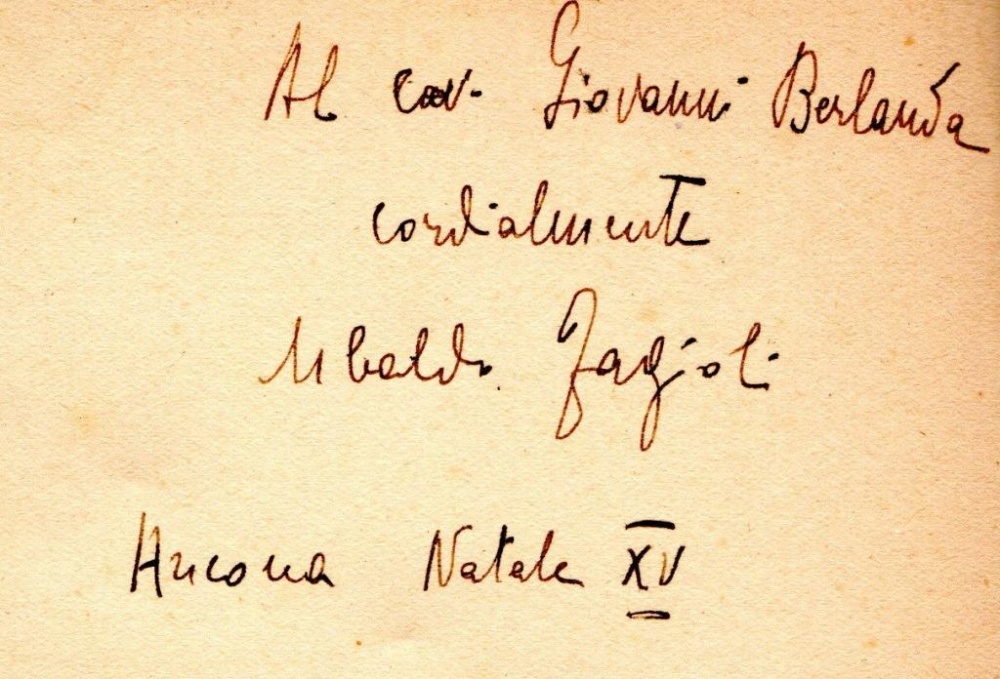 Al cav. Giovanni Berlanda
cordialmente
Ubaldo Fagioli
Ancona Natale XV